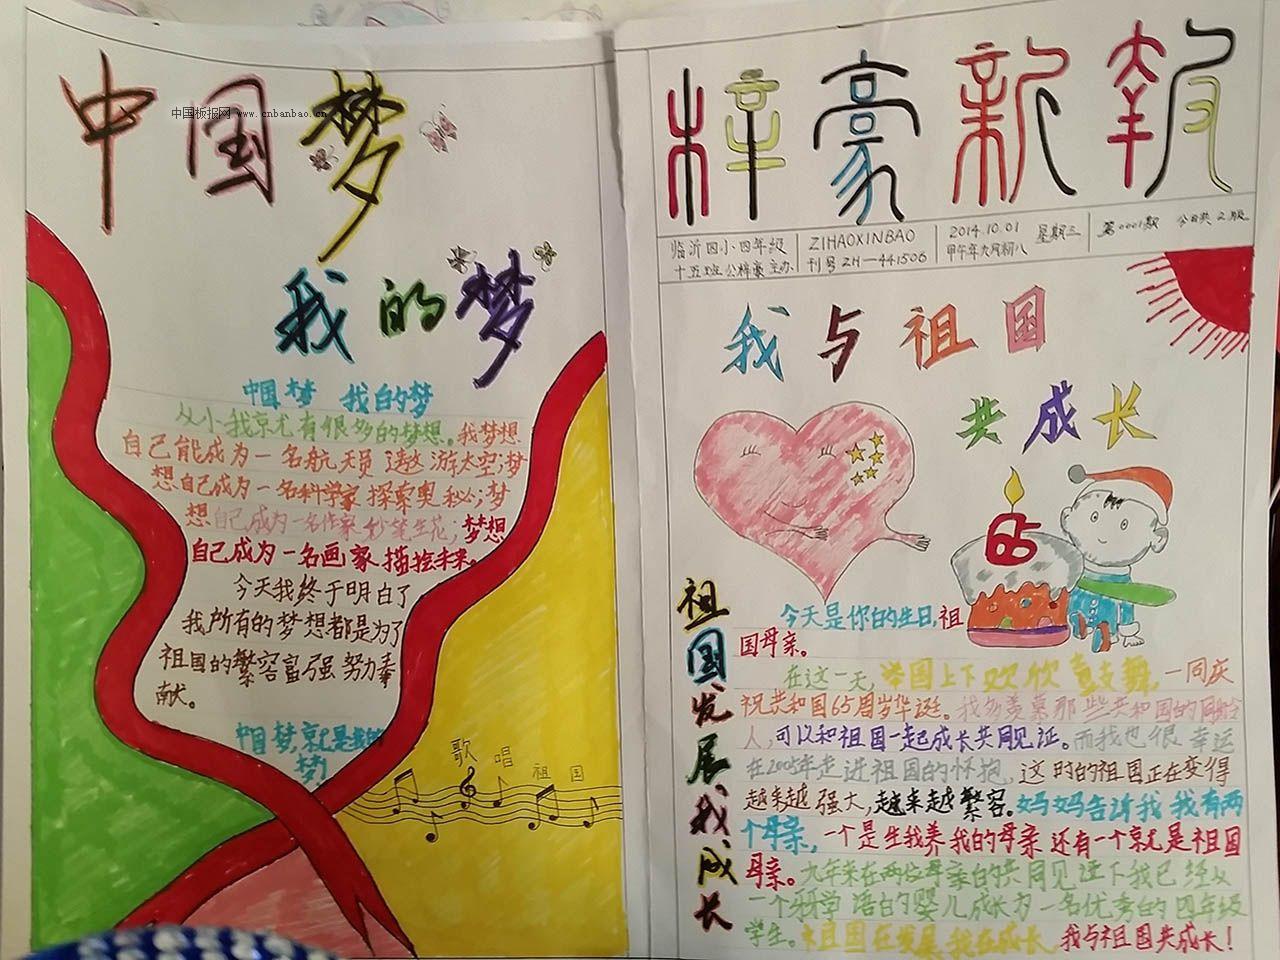 中国梦
中国板报网 www.cnbanbao.cn
我的梦
中国梦 我的梦
从小我就有很多的梦想。我梦想
自己能成为一名航天员遨游太空;梦
想自己成为一名科学家探索奥秘;梦
想自己成为一名作家妙笔生花;梦想
自己成为一名画家描绘未来。
今天我终于明白了
我所有的梦想都是为了
祖国的繁容富强努力奉
献。
中国梦就是我的
梦!
歌唱祖国
梓豪新报
临沂四小四年级
十五班公梓豪主办
ZIHAOXINBAO
刊号ZH—441506
2014.10.01 星期三
甲午年九月初八
第0001期 今日共2版
我与祖国
共成长
65
祖国发展我成长
今天是你的生日,祖
国母亲。
在这一天,举国上下欢欣鼓舞,一同庆
祝共和国65周岁华诞。我多羡慕那些共和国的同龄
人,可以和祖国一起成长共同见证。而我也很幸运
在2005年走进祖国的怀抱,这时的祖国正在变得
越来越强大,越来越繁容。妈妈告诉我我有两
个母亲,一个是生我养我的母亲还有一个就是祖国
母亲。九年来在两位母亲的共同见证下我已经从
一个牙牙学语的婴儿成长为一名优秀的四年级
学生。祖国在发展我在成长,我与祖国共成长!